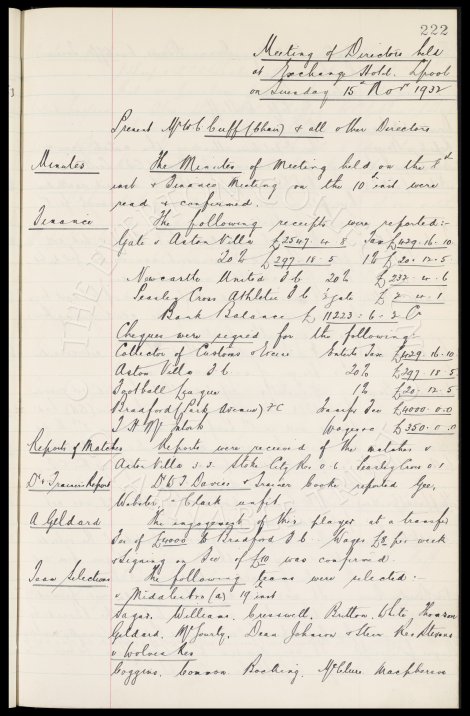 222
Meeting of Directors held
at Exchange Hotel. L'pool
on Tuesday 15th Novr 1932
Present Mr W C Cuff (Chair) & all other Directors
Minutes The Minutes of Meeting held on the 8th
inst & Finance Meeting on the 10th inst were
read & confirmed.
Finance The following receipts were reported:-
Gate v Aston Villa £2547. 4. 8 Tax £429. 16. 10
20% £297. 18. 5 1% £20. 12. 5
Newcastle United F C 20% £232. 4. 6
Cross Athletic F C gate £ 4. 1
Bank Balance £11223. 6. 2 C
Cheques were signed for the following:
Collector of Customs & Excise Entertn Tax £429. 16. 10
Aston Villa F C 20% £297. 18. 5
Football League 1% £20. 12. 5
Bradford (Park Avenue) F C Transfer Fee £4000. 0. 0
Wages £350. 0. 0
Reports of Matches Reports were received of the matches v
Aston Villa Stoke City Res 0 6
Dr & Trainers Report Dr D J Davies & Trainer Cooke reported Gee,
Webster & Clark unfit
A Geldard The engagement of this player at a transfer
Fee of £4000 to Bradford F C. Wages £8 per week
& Signing on Fee of £10 was confirmed
Team Selections The following teams were selected:-
v Middlesbro (a) 19 inst
Sagar, Williams. Cresswell, Britton, White, Thomson
Geldard, McGourty, Dean Johnson & Stein Res Stevens
v Wolves Res
Coggins, Common Bocking, McClure Macpherson